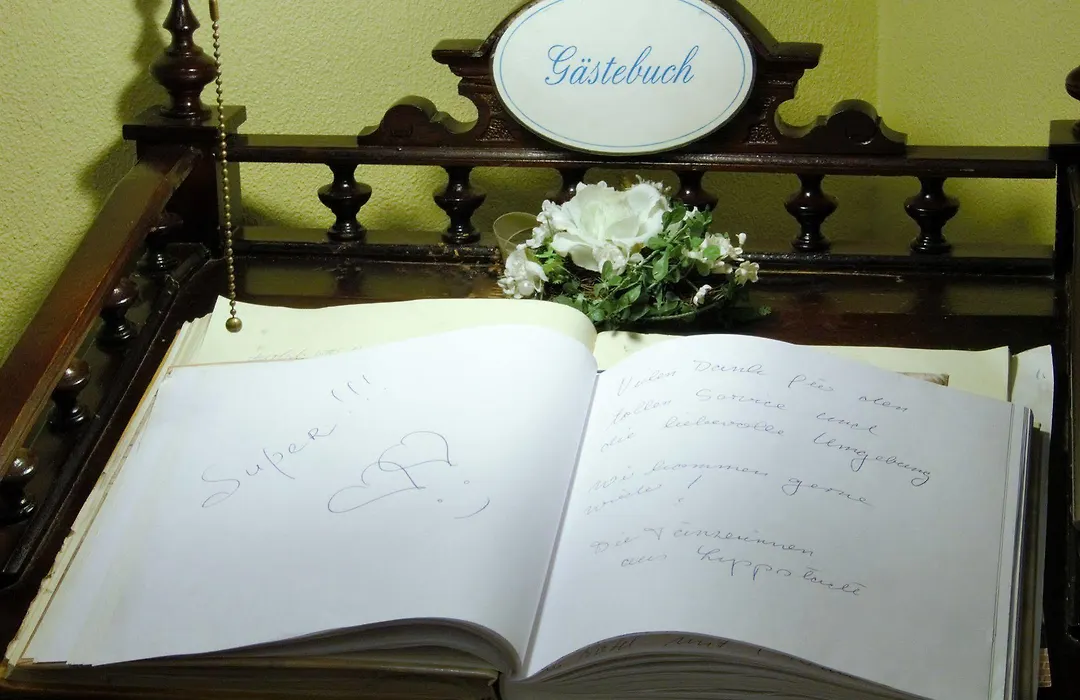 Gästebuch
Super!!!
: )
Vielen Dank für den
tollen Service und
die liebevolle Umgebung
wir kommen gerne
wieder!
Die Tänzerinnen
aus Lippstadt